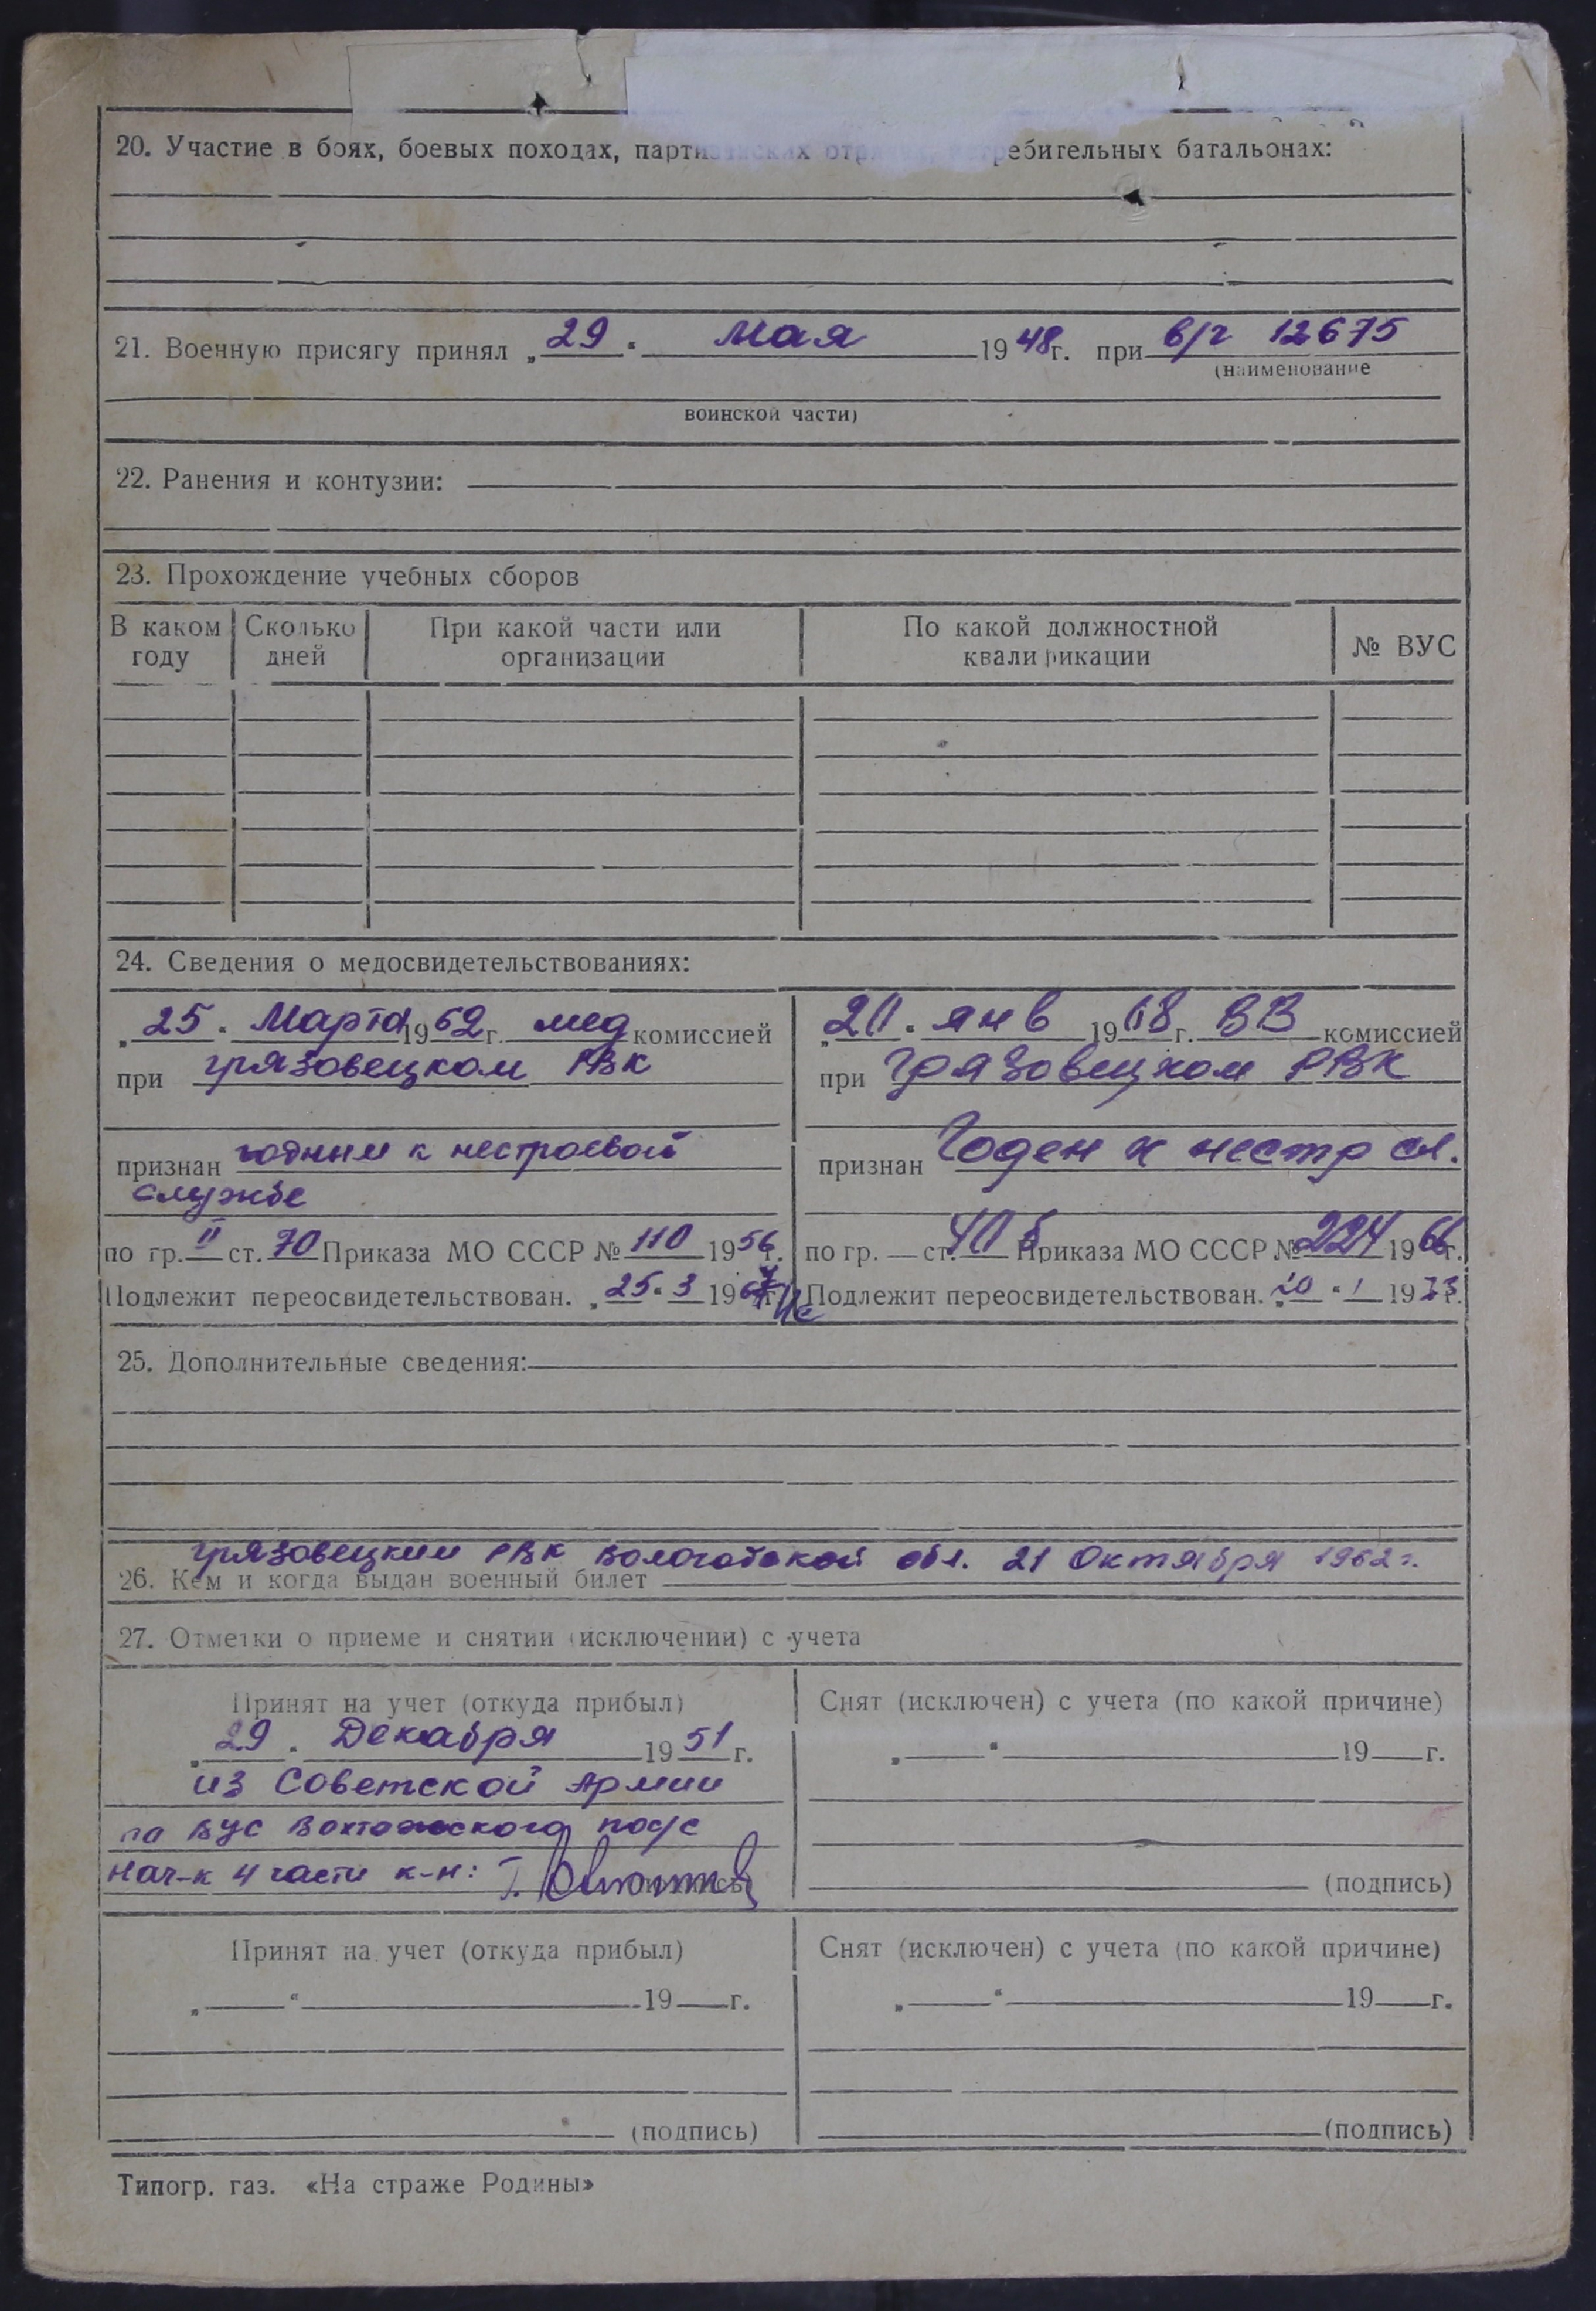 20. Участие в боях, боевых походах, партизанских отрядах, истребительных батальонах:
21. Военную присягу принял „29" Мая 1948г. при в/ч 12675
(наименование
воинской части)
22. Ранения и контузии:
23. Прохождение учебных сборов
В каком году | Сколько дней | При какой части или организации | По какой должностной квалификации | № ВУС
24. Сведения о медосвидетельствованиях:
„25" Марта 1962г. мед комиссией
при грязовецком РВК
признан годным к нестроевой
службе
по гр. II ст. 70 Приказа МО СССР № 110 1956г.
Подлежит переосвидетельствован. „25" 3 1967г.
„20" янв 1968г. ВВ комиссией
при Грязовецком РВК
признан Годен к нестр сл.
по гр. — ст. 40 б Приказа МО СССР № 224 1966г.
Подлежит переосвидетельствован. „20" 1 1973г.
25. Дополнительные сведения:
грязовецким РВК Вологодской обл. 21 Октября 1962г.
26. Кем и когда выдан военный билет
27. Отметки о приеме и снятии (исключении) с учета
Принят на учет (откуда прибыл)
„29" Декабря 1951г.
из Советской Армии
на ВУС Вохтожского пос/с
нач-к 4 части к-н: Г.
(подпись)
Снят (исключен) с учета (по какой причине)
„ " 19 г.
(подпись)
Принят на учет (откуда прибыл)
„ " 19 г.
(подпись)
Снят (исключен) с учета (по какой причине)
„ " 19 г.
(подпись)
Типогр. газ. «На страже Родины»